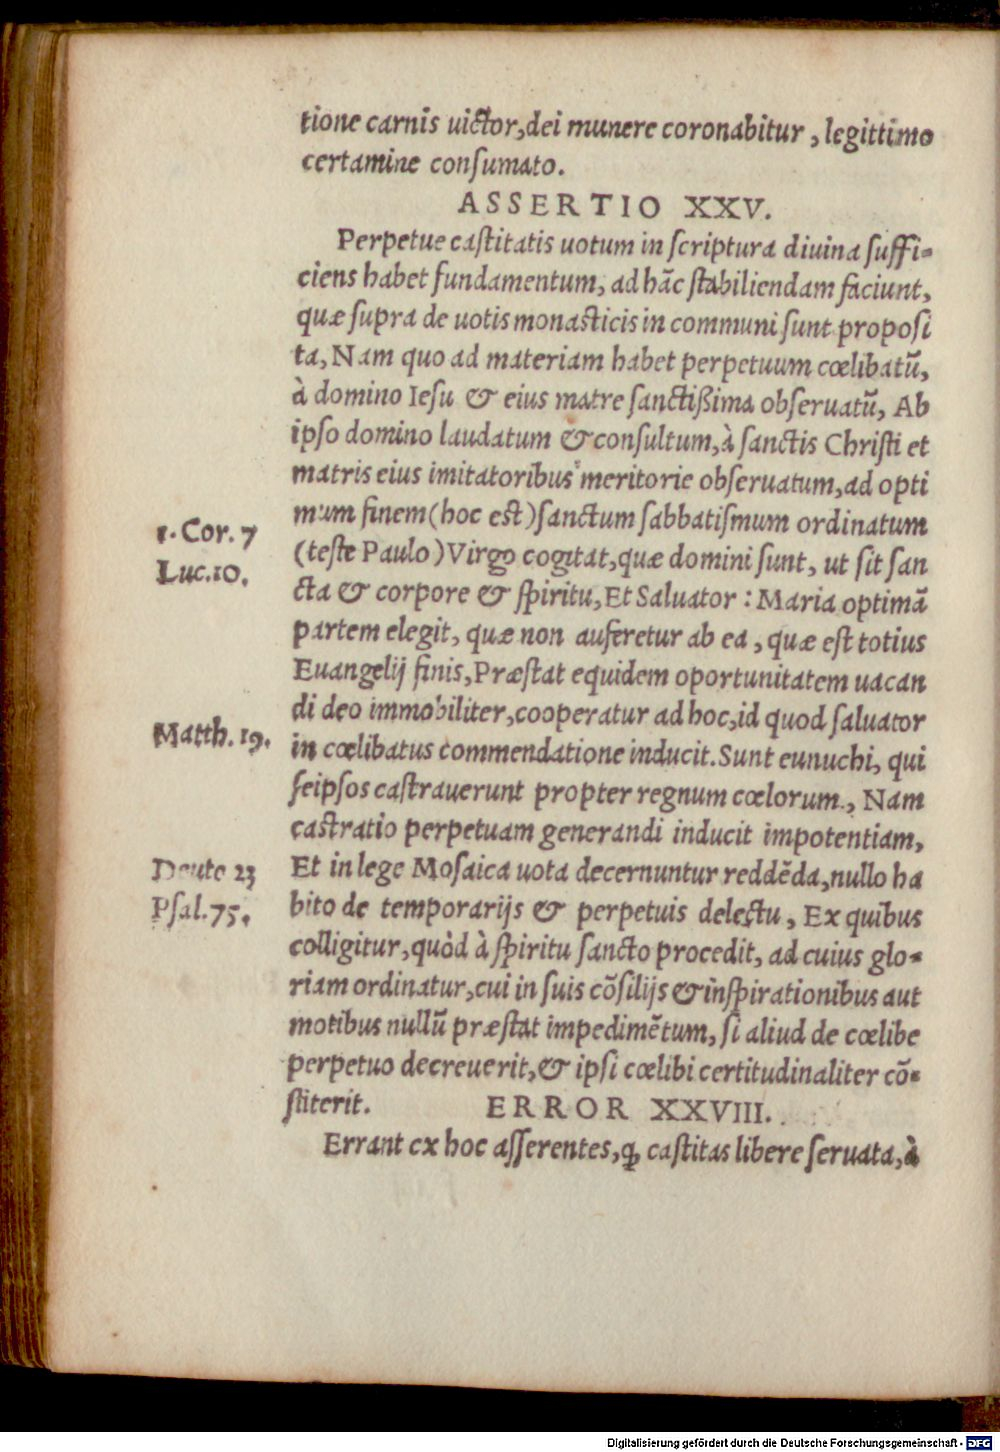 tione carnis uictor, dei munere coronabitur, legittimo
certamine consumato.
ASSERTIO XXV.
Perpetue castitatis uotum in scriptura diuina suffi-
ciens habet fundamentum, ad hãc stabiliendam faciunt,
quæ supra de uotis monasticis in communi sunt proposi
ta, Nam quo ad materiam habet perpetuum cœlibatũ,
à domino Iesu & eius matre sanctißima obseruatũ, Ab
ipso domino laudatum & consultum, à sanctis Christi et
matris eius imitatoribus meritorie obseruatum, ad opti
mum finem (hoc est) sanctum sabbatismum ordinatum
1. Cor. 7
(teste Paulo) Virgo cogitat, quæ domini sunt, ut sit san
Luc. 10.
cta & corpore & spiritu, Et Saluator : Maria optimã
partem elegit, quæ non auferetur ab ea, quæ est totius
Euangelij finis, Præstat equidem oportunitatem uacan
di deo immobiliter, cooperatur ad hoc, id quod saluator
Matth. 19.
in cœlibatus commendatione inducit. Sunt eunuchi, qui
seipsos castrauerunt propter regnum cœlorum., Nam
castratio perpetuam generandi inducit impotentiam,
Deute 23
Et in lege Mosaica uota decernuntur reddẽda, nullo ha
Psal. 75.
bito de temporarijs & perpetuis delectu, Ex quibus
colligitur, quòd à spiritu sancto procedit, ad cuius glo-
riam ordinatur, cui in suis cõsilijs & inspirationibus aut
motibus nullũ præstat impedimẽtum, si aliud de cœlibe
perpetuo decreuerit, & ipsi cœlibi certitudinaliter cõ-
stiterit. ERROR XXVIII.
Errant ex hoc asserentes, ꝙ castitas libere seruata, à
Digitalisierung gefördert durch die Deutsche Forschungsgemeinschaft - DFG